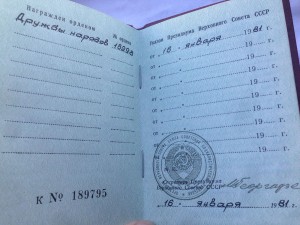 Награжден орденом
№ ордена
Дружбы народов 15298
К № 189795
Указом Президиума Верховного Совета СССР
от „ 16 „ января 1981
от „ „ 19
от „ „ 19
от „ „ 19
от „ „ 19
от „ „ 19
от „ „ 19
от „ „ 19
Секретарь Президиума
Верховного Совета СССР
„ 16 „ января 1981 г.